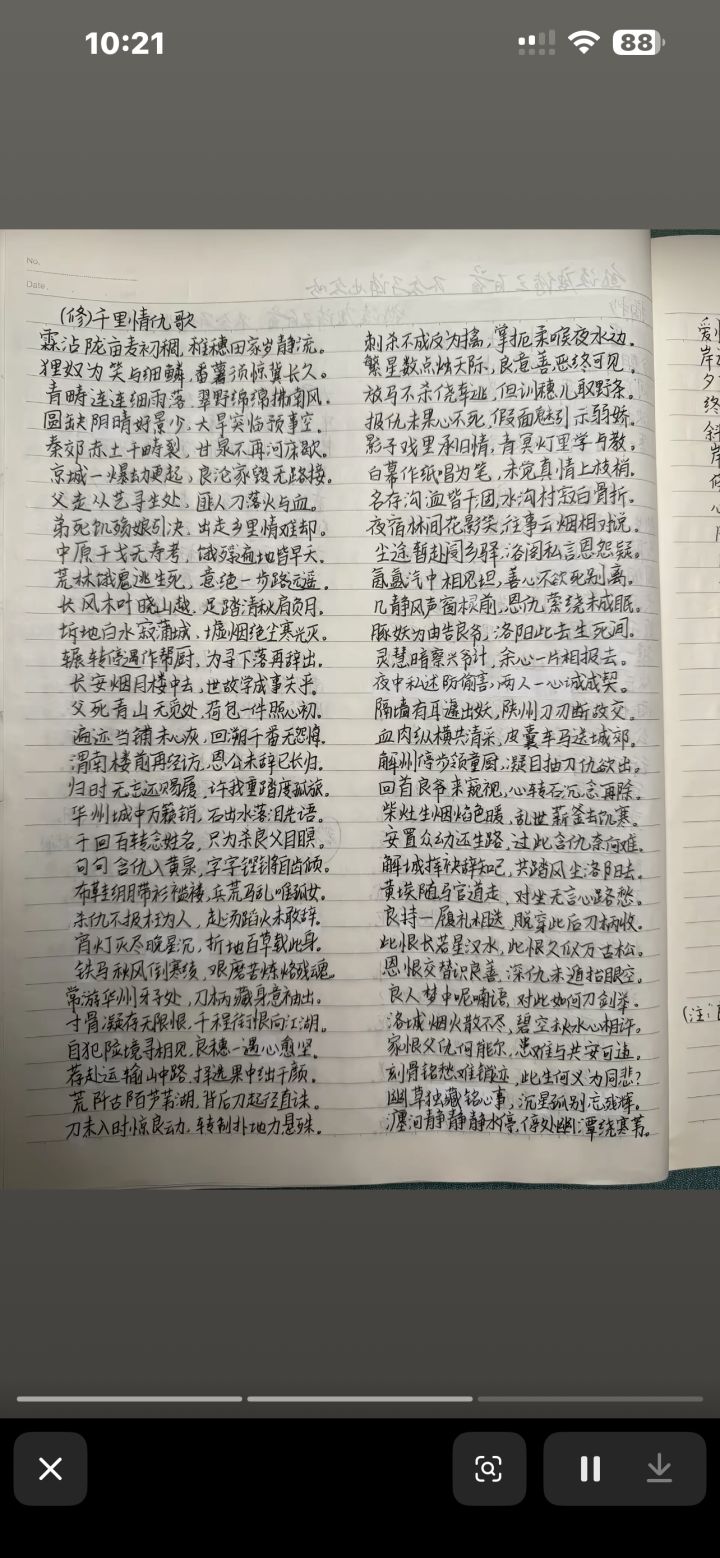 10:21
88
No.
Date.
(修)千里情仇歌
霖沾陇亩麦初稠，稚穗田家岁静流。
狸奴为笑与细鳞，番薯须惊冀长久。
青畴连连细雨落，翠野绵绵拂南风。
圆缺阴晴好景少，大旱突临预事空。
秦郊赤土千畴裂，甘果不再河床歇。
京城一爆劫更起，良沱家毁无路接。
父走从艺寻生处，匪人刀落火与血。
弟死饥殇娘引决，出走乡里情难却。
中原干戈无寿考，饿殍遍地皆早夭。
荒林饿鬼逃生死，意绝一步路远遥。
长风木叶晓山越，足踏清秋肩负月。
坼地白水寂蒲城，墟烟绝尘寒光灭。
辗转停遇作帮厨，为寻下落再辞出。
长安烟月楼中去，世故学成事关乎。
父死青山无觅处，荷包一件照心初。
遍迹当铺未心灰，回溯千番无怨悔。
渭南楼前再经访，恩公未辞已长归。
归时无忘还赐履，许我重踏度孤旅。
华州城中万籁钥，石出水落泪先语。
千回百转念姓名，只为杀良父目瞑。
句句含仇入黄泉，字字铿锵自齿倾。
布鞋绑带衫褴褛，兵荒马乱唯孤女。
杀仇不报枉为人，赴汤蹈火未敢辞。
宵灯灭尽晚星沉，折地百草载此身。
铁马秋风倒寒绫，艰磨苦炼烙残魂。
常游华州牙子处，刀柄藏身意袖出。
寸骨凝存无限恨，千程衔恨向江湖。
自犯险境寻相见，良穗一遇心愈坚。
荐赴运输山中路，择选果中绌于颜。
荒阡古陌芦苇湖，背后刀起径直诛。
刀未入时惊良动，转制扑地力悬殊。
刺杀不成反为擒，掌扼柔喉夜水边。
繁星数点烛天际，良意善恶终可见。
放马不杀侥幸逃，但训穗儿取野条。
报仇未果心不死，假面魅引示弱娇。
影子戏里承旧情，青冥灯里学与教。
白幕作纸唱为笔，未觉真情上枝梢。
名存沟洫皆干固，水沟村寂白骨折。
夜宿林间花影笑，往事云烟相对说。
尘途暂赴阌乡驿，洛阁私言恩怨疑。
氤氲汽中相见坦，善心不欲死别离。
几静风声窗棂前，恩仇萦绕未成眠。
豚妖为由告良爷，洛阳此去生死间。
灵慧暗察兴爷计，余心一片相报去。
夜中私述防偷害，两人一心诚成契。
隔墙有耳遽出妖，陕州刀刃断故交。
血肉纵横共清采，皮囊车马送城郊。
解州停步领童厨，凝目抽刀仇欲出。
回首良爷来窥视，心转石沉念再除。
柴灶生烟焰色暖，乱世薪釜去饥寒。
安置众幼还生路，过此含仇奈何难。
解城挥袂辞知己，共踏风尘洛阳去。
黄埃随马官道走，对坐无言心路愁。
良持一履礼相送，脱穿此后刀柄收。
此恨长若星汉水，此恨久似万古松。
恩恨交替识良善，深仇未遁抬眼空。
良人梦中呢喃语，对此如何刀剑举。
洛城烟火散不尽，碧空秋水心相许。
家恨父仇何能尔，患难与共安可道。
刻骨铭愁难销迹，此生何义为同悲？
幽草独藏铭心事，沉星孤别忘残辉。
瀍河静静静水停，停处幽潭绕寒苇。